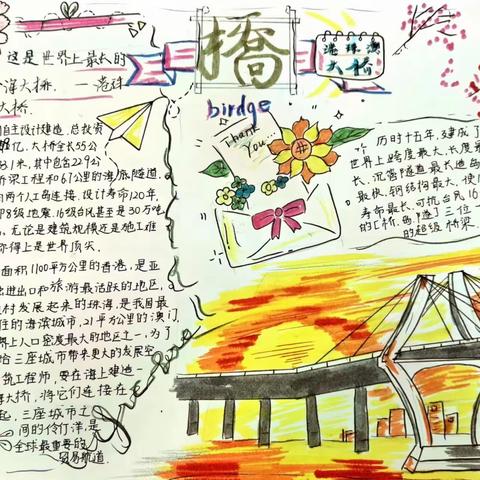 这是世界上最长的
海大桥. — 港珠
大桥.
自主设计建造.总投资
亿.大桥全长55公
.1米,其中包含22.9公
桥梁工程和6.7公里的海底隧道.
两个人工岛连接.设计寿命120年.
8级地震.16级台风甚至是30万吨
.无论是建筑规模还是施工难
你得上是世界顶尖.
面积1100平方公里的香港,是亚
出进出口和旅游最活跃的地区,
村发展起来的珠海,是我国最
住的海滨城市,21平方公里的澳门,
界上人口密度最大的地区之一.为了
给三座城市带来更大的发展空
筑工程师,要在海上建造一
大桥,将它们连接在
起,三座城市之
间的伶仃洋,是
全球最重要的
贸易航道.
桥
birdge
港珠澳
大桥
Thank
you...
历时十五年,建成了
世界上跨度最大,长度最
长,沉管隧道最长造
最快,钢结构最大,使
寿命最长,可抗台风16
的[桥.岛.隧]三位一
的超级桥梁